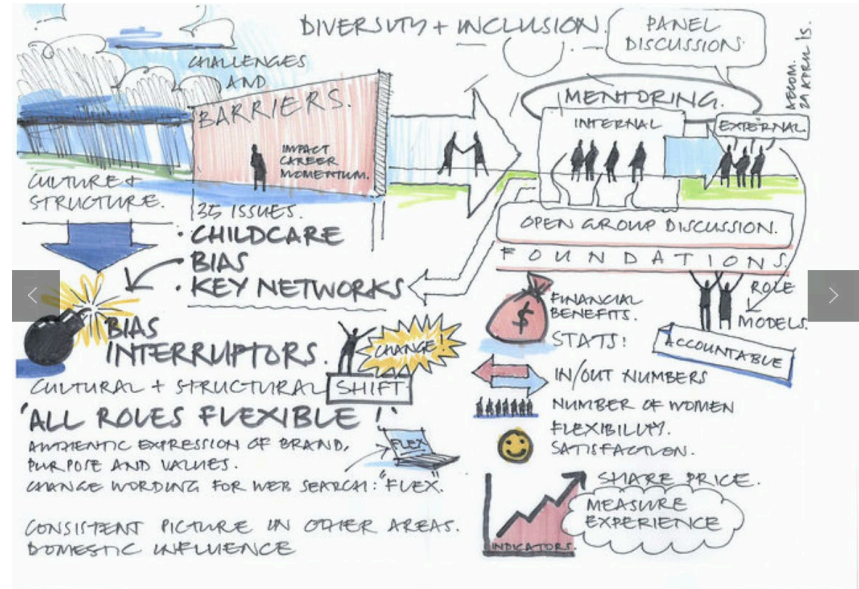 DIVERSITY + INCLUSION.
PANEL
DISCUSSION.
AECOM.
21 APRIL 15.
CHALLENGES
AND
BARRIERS.
IMPACT
CAREER
MOMENTUM.
MENTORING.
INTERNAL
EXTERNAL
CULTURE +
STRUCTURE.
35 ISSUES.
• CHILDCARE
• BIAS
• KEY NETWORKS
OPEN GROUP DISCUSSION.
FOUNDATIONS.
ROLE
MODELS.
ACCOUNTABLE
BIAS
INTERRUPTORS.
CHANGE!
CULTURAL + STRUCTURAL SHIFT
'ALL ROLES FLEXIBLE!'
AUTHENTIC EXPRESSION OF BRAND,
PURPOSE AND VALUES.
CHANGE WORDING FOR WEB SEARCH: "FLEX".
FLEX
CONSISTENT PICTURE IN OTHER AREAS.
DOMESTIC INFLUENCE
$
FINANCIAL
BENEFITS.
STATS!
IN/OUT NUMBERS
NUMBER OF WOMEN
FLEXIBILITY.
SATISFACTION.
SHARE PRICE.
MEASURE
EXPERIENCE
INDICATORS.